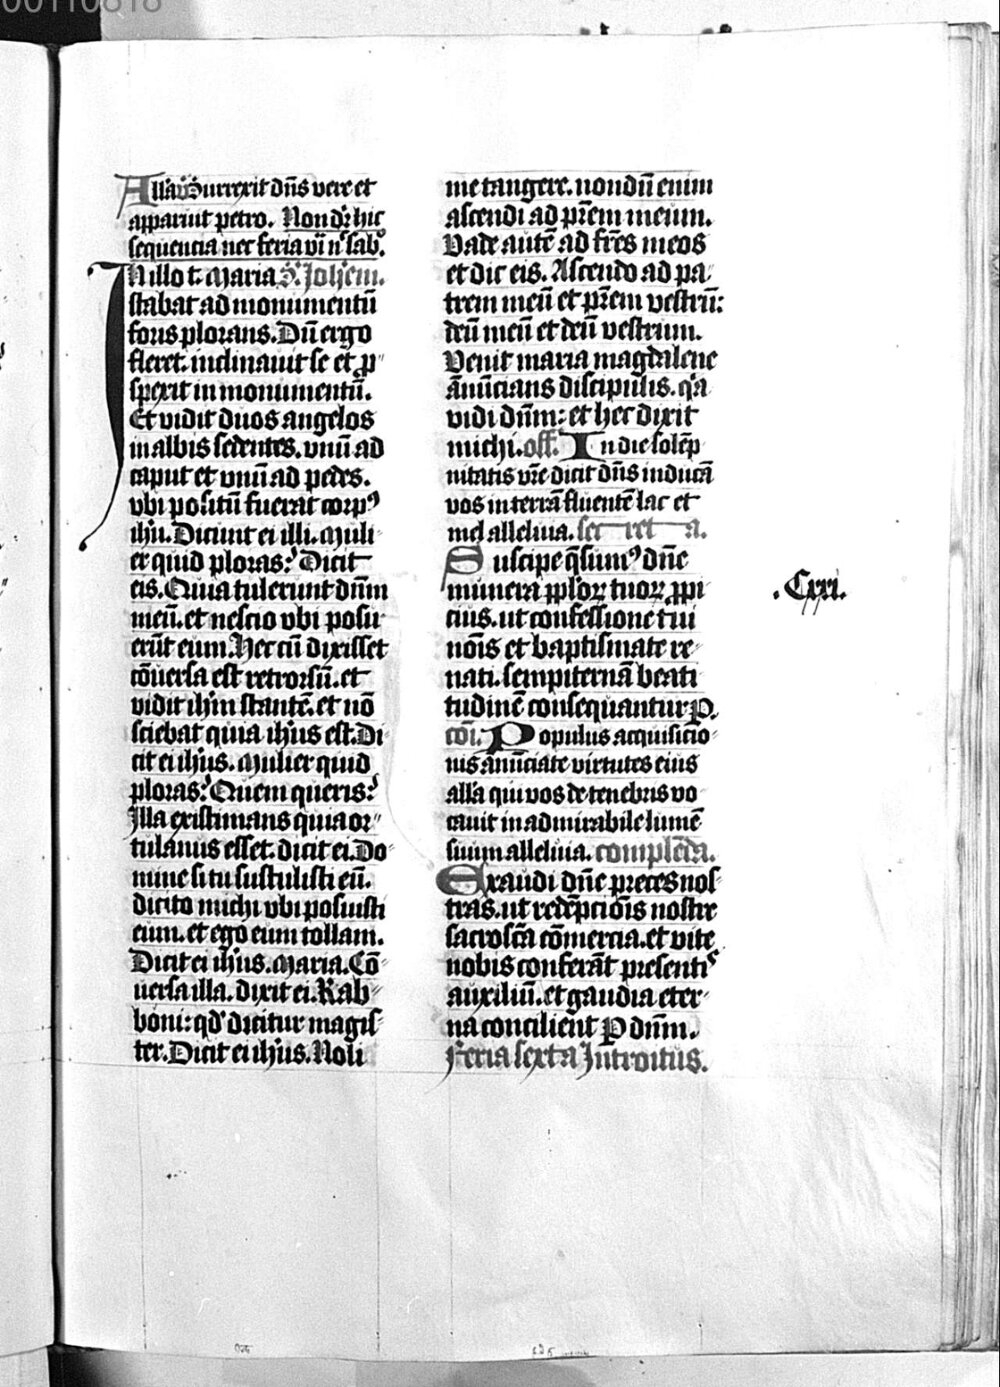 Alla v̄ Surrexit dn̄s vere et
apparuit petro. Non dr̄ hic
sequencia nec feria vi nͨ sabͦ.
In illo t. Maria S. Joh̄em.
stabat ad monumentū
foris plorans. Dū ergo
fleret. inclinauit se et ꝓ
spexit in monumentū.
Et vidit duos angelos
in albis sedentes. vnū ad
caput et vnū ad pedes.
vbi positū fuerat corpꝰ
ih̄u. Dicunt ei illi. Muli
er quid ploras? Dicit
eis. Quia tulerunt dn̄m
meū. et nescio vbi posu
erūt eum. Hec cū dixisset
cōuersa est retrorsū. et
vidit ih̄m stantē. et nō
sciebat quia ih̄us est. Di
cit ei ih̄us. Mulier quid
ploras? Quem queris?
Illa existimans quia or
tulanus esset. dicit ei. Do
mine si tu sustulisti eū.
dicito michi vbi posuisti
eum. et ego eum tollam.
Dicit ei ih̄us. Maria. Cō
uersa illa. dixit ei. Rab
boni: qd̓ dicitur magis
ter. Dicit ei ih̄us. Noli
me tangere. nondū enim
ascendi ad pr̄em meum.
Vade autē ad fr̄es meos
et dic eis. Ascendo ad pa
trem meū et pr̄em vestrū:
deū meū et deū vestrum.
Venit maria magdalene
ānūcians discipulis. qͥa
vidi dn̄m: et hec dixit
michi. off. In die solēp
nitatis vr̄e dicit dn̄s inducā
vos in terrā fluentē lac et
mel alleluia. secreta.
Suscipe qͣsumꝰ dn̄e
munera pplōꝝ tuoꝝ ꝓpi
cius. ut confessione tui
nōis et baptismate re
nati. sempiternā beati
tudinē consequantur P.
cōi. Populus acquisicio
nis anūciate virtutes eius
alla qui vos de tenebris vo
cauit in admirabile lumē
suum alleluia. complēda.
Exaudi dn̄e preces nos
tras. ut redēpcōis nostre
sacrosc̄a cōmercia. et vite
nobis conferāt presentis
auxiliū. et gaudia eter
na concilient P dn̄m.
Feria sexta Introitus.
.Cxxi.